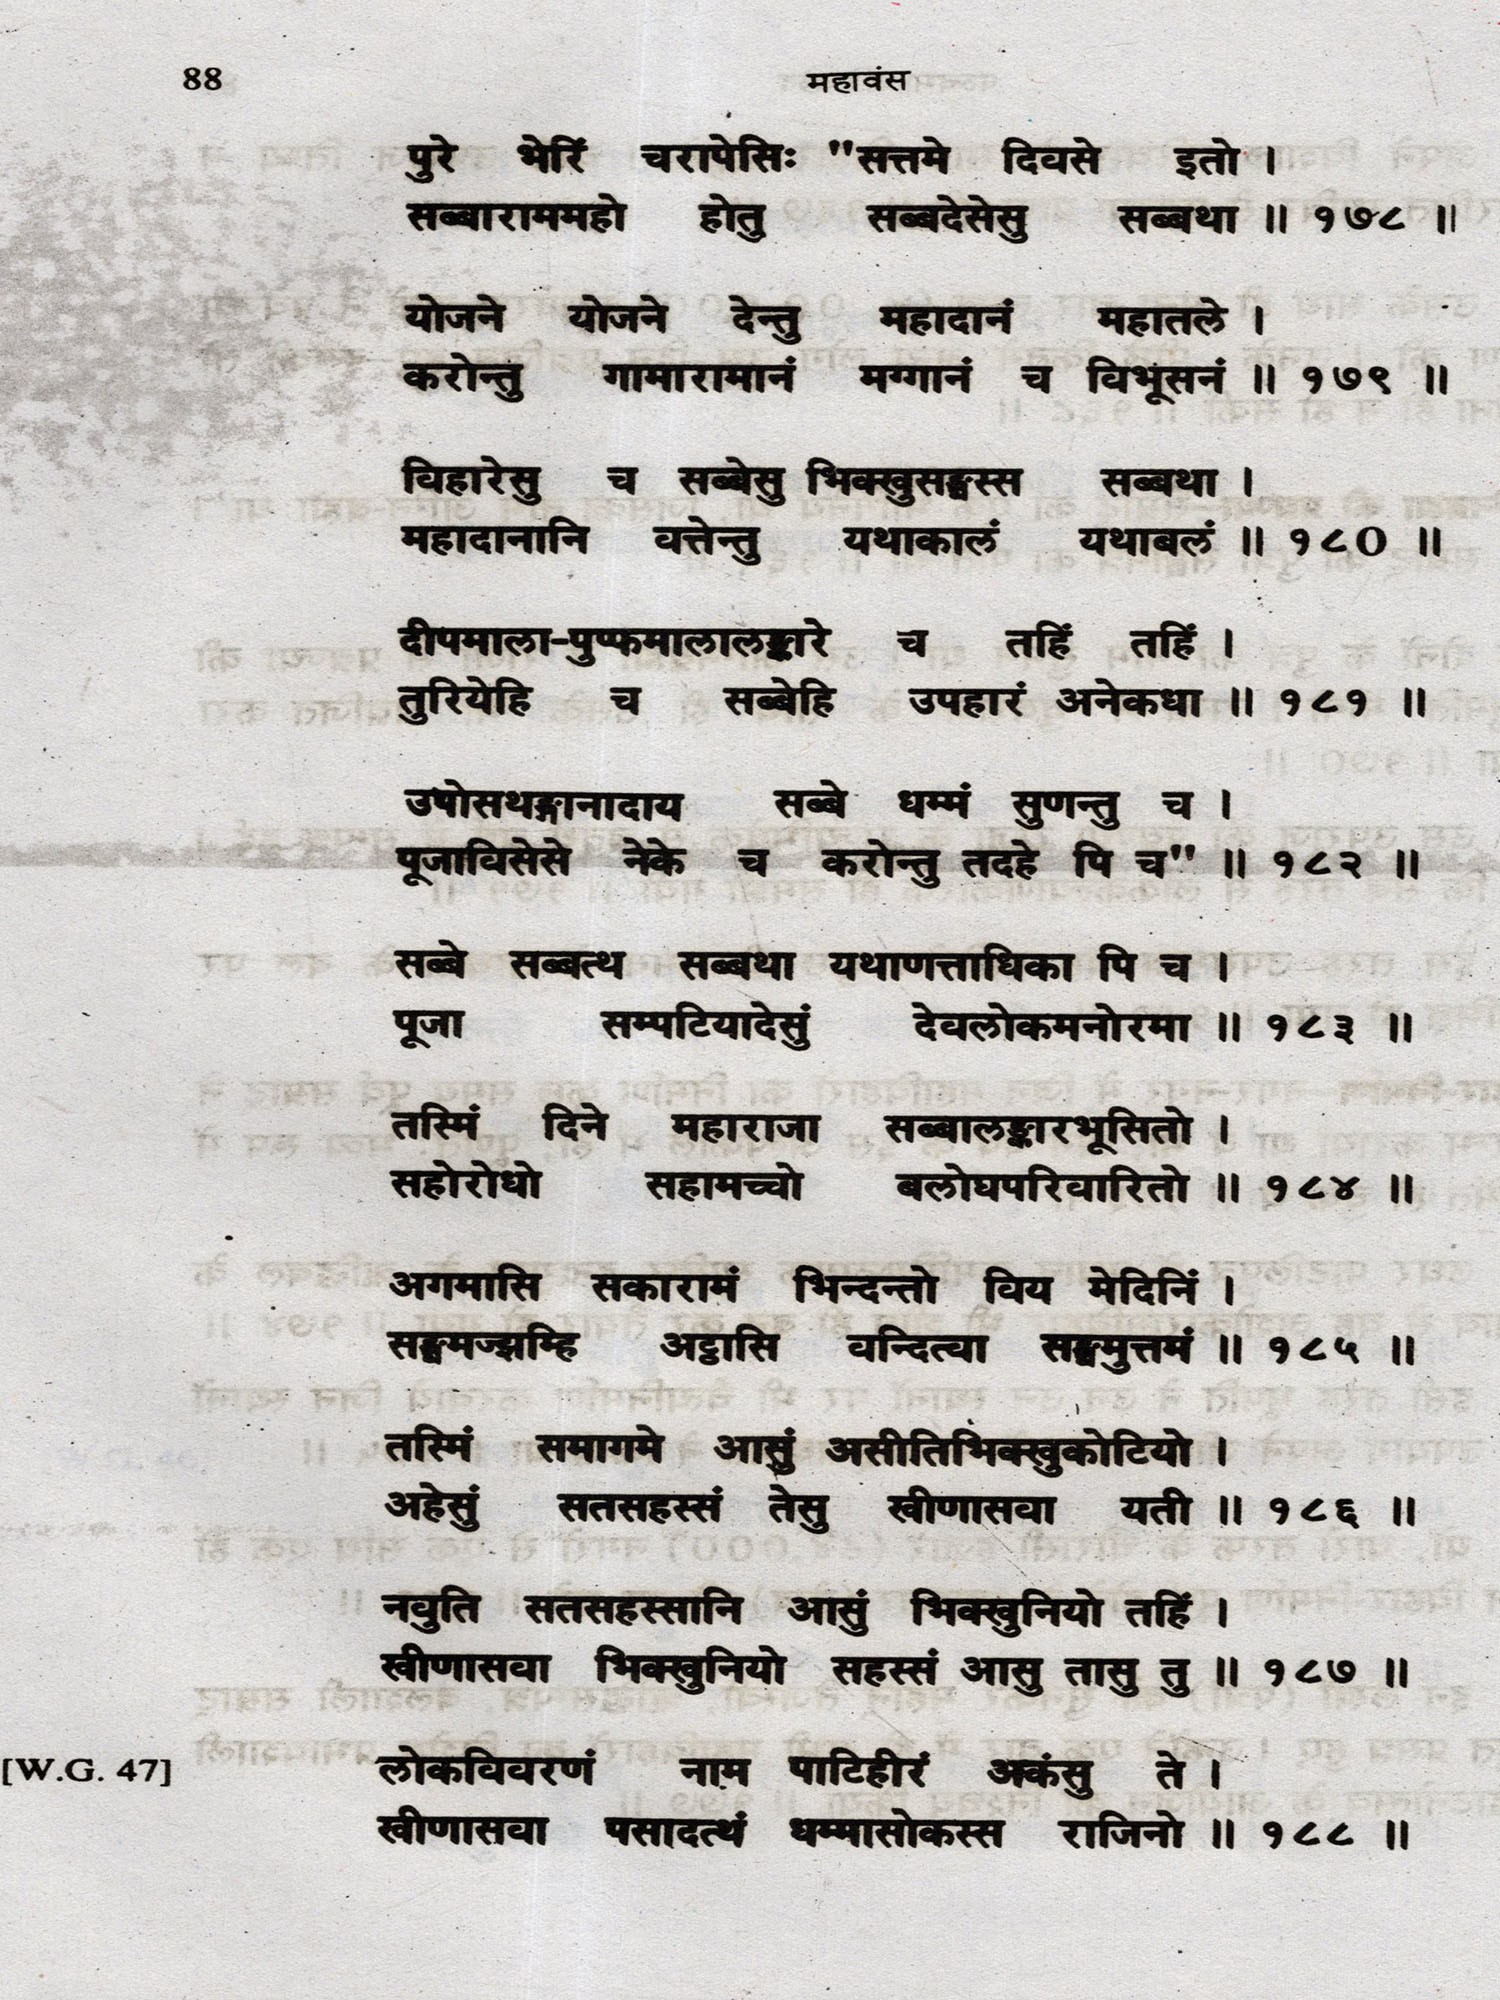 88
महावंस
पुरे भेरिं चरापेसिः "सत्तमे दिवसे इतो ।
सब्बाराममहो होतु सब्बदेसेसु सब्बथा ॥ १७८ ॥
योजने योजने देन्तु महादानं महातले ।
करोन्तु गामारामानं मग्गानं च विभूसनं ॥ १७९ ॥
विहारेसु च सब्बेसु भिक्खुसङ्घस्स सब्बथा ।
महादानानि वत्तेन्तु यथाकालं यथाबलं ॥ १८0 ॥
दीपमाला-पुप्फमालालङ्कारे च तहिं तहिं ।
तुरियेहि च सब्बेहि उपहारं अनेकधा ॥ १८१ ॥
उपोसथङ्गानादाय सब्बे धम्मं सुणन्तु च ।
पूजाविसेसे नेके च करोन्तु तदहे पि च" ॥ १८२ ॥
सब्बे सब्बत्थ सब्बथा यथाणत्ताधिका पि च ।
पूजा सम्पटियादेसुं देवलोकमनोरमा ॥ १८३ ॥
तस्मिं दिने महाराजा सब्बालङ्कारभूसितो ।
सहोरोधो सहामच्चो बलोघपरिवारितो ॥ १८४ ॥
अगमासि सकारामं भिन्दन्तो विय मेदिनिं ।
सङ्घमज्झम्हि अट्ठासि वन्दित्वा सङ्घमुत्तमं ॥ १८५ ॥
तस्मिं समागमे आसुं असीतिभिक्खुकोटियो ।
अहेसुं सतसहस्सं तेसु खीणासवा यती ॥ १८६ ॥
नवुति सतसहस्सानि आसुं भिक्खुनियो तहिं ।
खीणासवा भिक्खुनियो सहस्सं आसु तासु तु ॥ १८७ ॥
[W.G. 47] लोकविवरणं नाम पाटिहीरं अकंसु ते ।
खीणासवा पसादत्थं धम्मासोकस्स राजिनो ॥ १८८ ॥